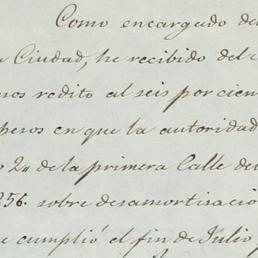 Como encargado de
Ciudad, he recibido del
redito al seis por cien
pesos en que la autoridad
2o de la primera Calle de
256. sobre desamortisació
cumplió el fin de Julio